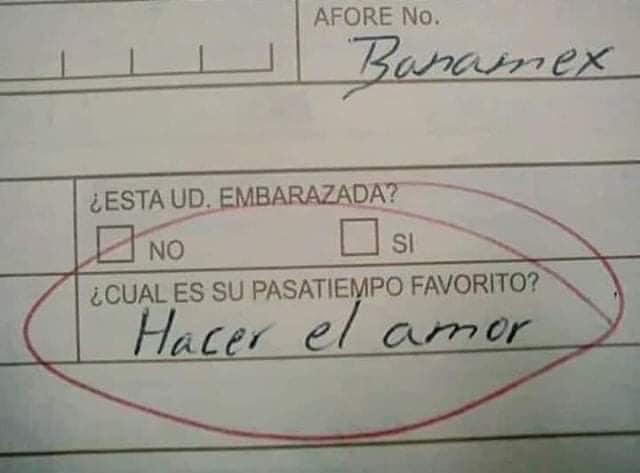 AFORE No.
Banamex
¿ESTA UD. EMBARAZADA?
NO SI
¿CUAL ES SU PASATIEMPO FAVORITO?
Hacer el amor